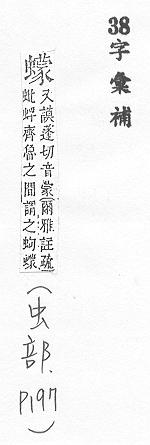 38字彙補
蠓
又謨蓬切音蒙爾雅註疏
蚍蜉齊魯之間謂之蚼蠓
(虫部、P197)